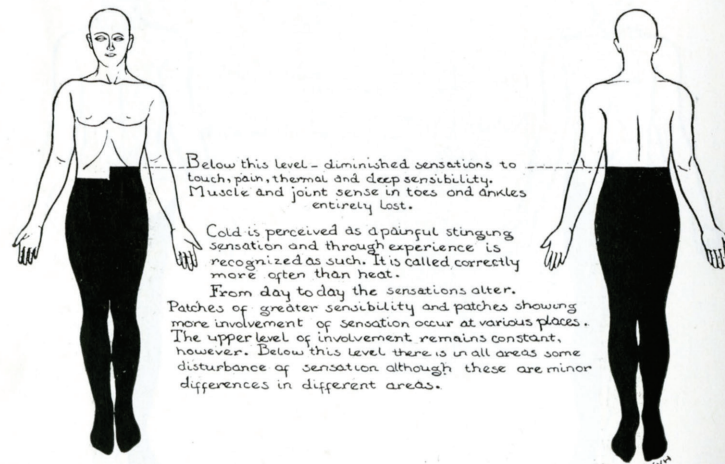 Below this level - diminished sensations to
touch, pain, thermal and deep sensibility.
Muscle and joint sense in toes and ankles
entirely lost.
Cold is perceived as a painful stinging
sensation and through experience is
recognized as such. It is called correctly
more often than heat.
From day to day the sensations alter.
Patches of greater sensibility and patches showing
more involvement of sensation occur at various places.
The upper level of involvement remains constant,
however. Below this level there is in all areas some
disturbance of sensation although these are minor
differences in different areas.